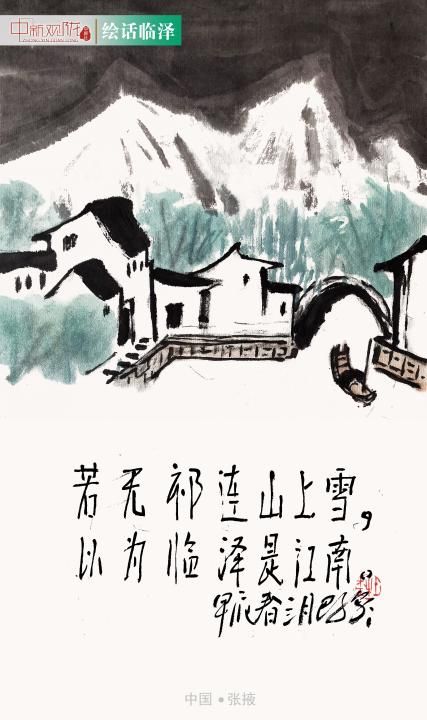 中新观陇
ZHONG XIN GUAN LONG
绘话临泽
若无祁连山上雪，
以为临泽是江南。
甲辰春三月
中国•张掖